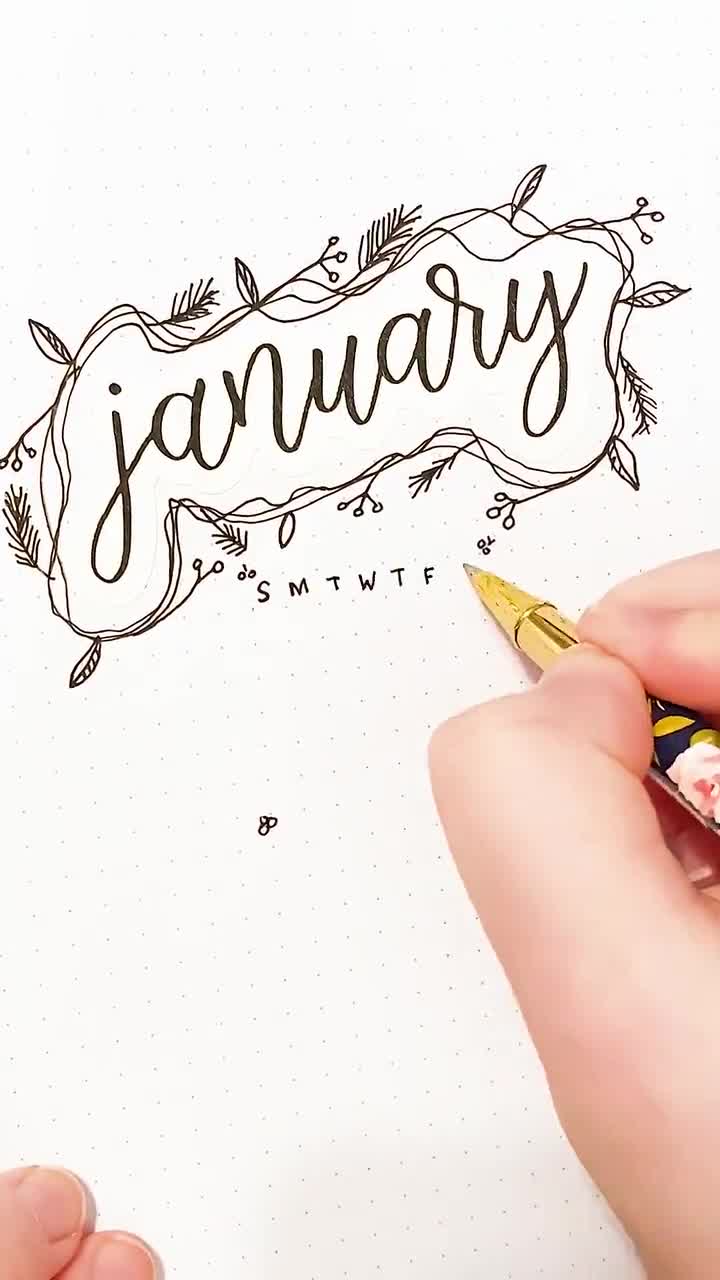 january
S M T W T F